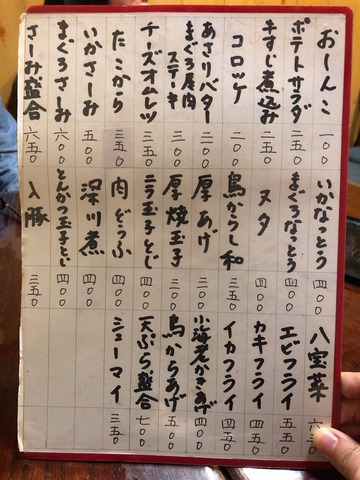 おしんこ 一〇〇
ポテトサラダ 二五〇
牛すじ煮込み 三五〇
コロッケ 二〇〇
あさりバター 三〇〇
まぐろ尾肉ステーキ 二〇〇
チーズオムレツ 三五〇
たこから 三五〇
いかさしみ 五〇〇
まぐろさしみ 六〇〇
さしみ盛合 六五〇
いかなっとう 四〇〇
まぐろなっとう 四〇〇
ヌタ 四〇〇
鳥からし和 三五〇
厚あげ 三〇〇
厚焼玉子 三〇〇
ニラ玉子とじ 四〇〇
肉どうふ 四〇〇
深川煮 四〇〇
とんかつ玉子とじ 四〇〇
入豚 三五〇
八宝菜 六五〇
エビフライ 五五〇
カキフライ 四五〇
イカフライ 四五〇
小海老かきあげ 四〇〇
鳥からあげ 五〇〇
天ぷら盛合 七〇〇
シューマイ 三五〇